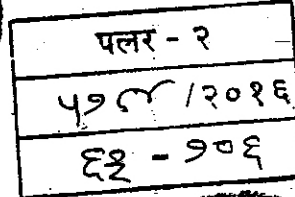 पलर - २
५७८ /२०१६
६३ - १०६